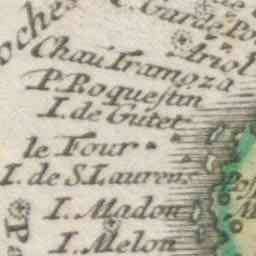 oches
C. Garde
Ariol
Chau Tramoza
P. Roquestin
I. de Gutet
le Four
I. de S. Laurens
Poss
I. Madon
I. Melon